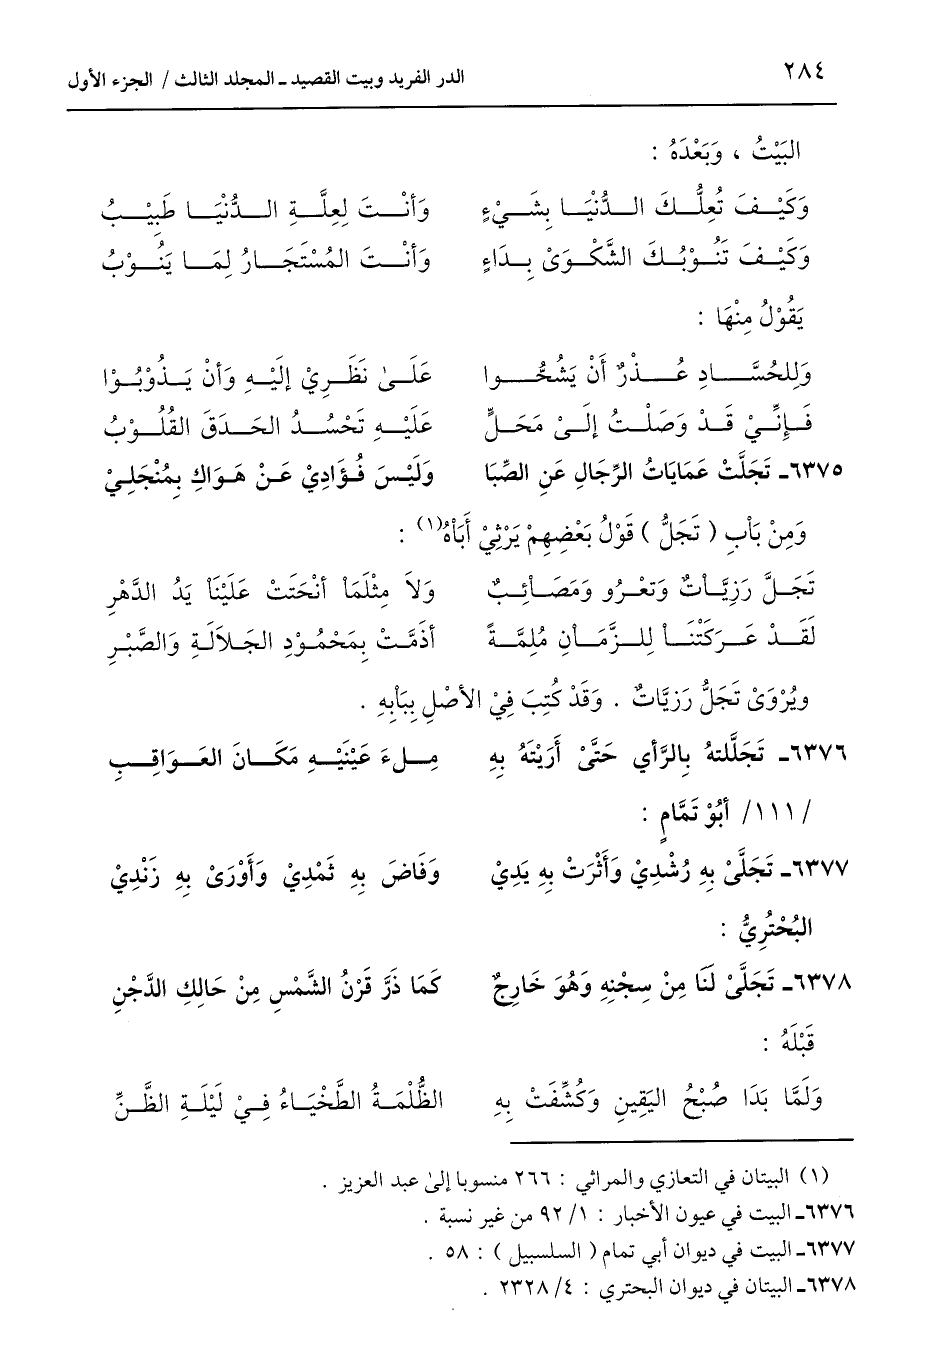 ٢٨٤ الدر الفريد وبيت القصيد ـ المجلد الثالث / الجزء الأول
البَيْتُ ، وَبَعْدَهُ :
وَكَيْفَ تُعِلُّكَ الدُّنْيَا بِشَيْءٍ وَأَنْتَ لِعِلَّةِ الدُّنْيَا طَبِيْبُ
وَكَيْفَ تَنُوْبُكَ الشَّكْوَىْ بِدَاءٍ وَأَنْتَ المُسْتَجَارُ لِمَا يَنُوْبُ
يَقُوْلُ مِنْهَا :
وَلِلحُسَّادِ عُذْرٌ أَنْ يَشُحُّوا عَلَىْ نَظَرِيْ إِلَيْهِ وَأَنْ يَذُوْبُوْا
فَإِنِّيْ قَدْ وَصَلْتُ إِلَىْ مَحَلٍّ عَلَيْهِ تَحْسُدُ الحَدَقَ القُلُوْبُ
٦٣٧٥ـ تَجَلَّتْ عَمَايَاتُ الرِّجَالِ عَنِ الصِّبَا وَلَيْسَ فُؤَادِيْ عَنْ هَوَاكِ بِمُنْجَلِيْ
وَمِنْ بَاْبِ ( تَجَلُّ ) قَوْلُ بَعْضِهِمْ يَرْثِيْ أَبَاْهُ(١) :
تَجَلَّ رَزِيَّاتٌ وَتَعْرُو وَمَصَائِبٌ وَلاَ مِثْلَمَا أَنْحَتْ عَلَيْنَا يَدُ الدَّهْرِ
لَقَدْ عَرَكَتْنَا لِلزَّمَانِ مُلِمَّةً أَذَمَّتْ بِمَحْمُوْدِ الجَلاَلَةِ وَالصَّبْرِ
ويُرْوَىْ تَجَلُّ رَزِيَّاتٌ . وَقَدْ كُتِبَ فِيْ الأَصْلِ بِبَاْبِهِ .
٦٣٧٦ـ تَجَلَّلتهُ بِالرَّأي حَتَّىْ أَرَيْتَهُ بِهِ مِلءَ عَيْنَيْهِ مَكَانَ العَوَاقِبِ
/١١١/ أَبُوْ تَمَّامٍ :
٦٣٧٧ـ تَجَلَّىْ بِهِ رُشْدِيْ وَأَثْرَتْ بِهِ يَدِيْ وَفَاضَ بِهِ ثَمْدِيْ وَأَوْرَىْ بِهِ زَنْدِيْ
البُحْتُرِيُّ :
٦٣٧٨ـ تَجَلَّىْ لَنَا مِنْ سِجْنِهِ وَهُوَ خَارِجٌ كَمَا ذَرَّ قَرْنُ الشَّمْسِ مِنْ حَالِكِ الدَّجْنِ
قَبْلَهُ :
وَلَمَّا بَدَا صُبْحُ اليَقِينِ وَكُشِّفَتْ بِهِ الظُّلْمَةُ الطَّخْيَاءُ فِيْ لَيْلَةِ الظَّنِّ
(١) البيتان في التعازي والمراثي : ٢٦٦ منسوبا إلىٰ عبد العزيز .
٦٣٧٦ـ البيت في عيون الأخبار : ١/ ٩٢ من غير نسبة .
٦٣٧٧ـ البيت في ديوان أبي تمام ( السلسبيل ) : ٥٨ .
٦٣٧٨ـ البيتان في ديوان البحتري : ٤/ ٢٣٢٨ .